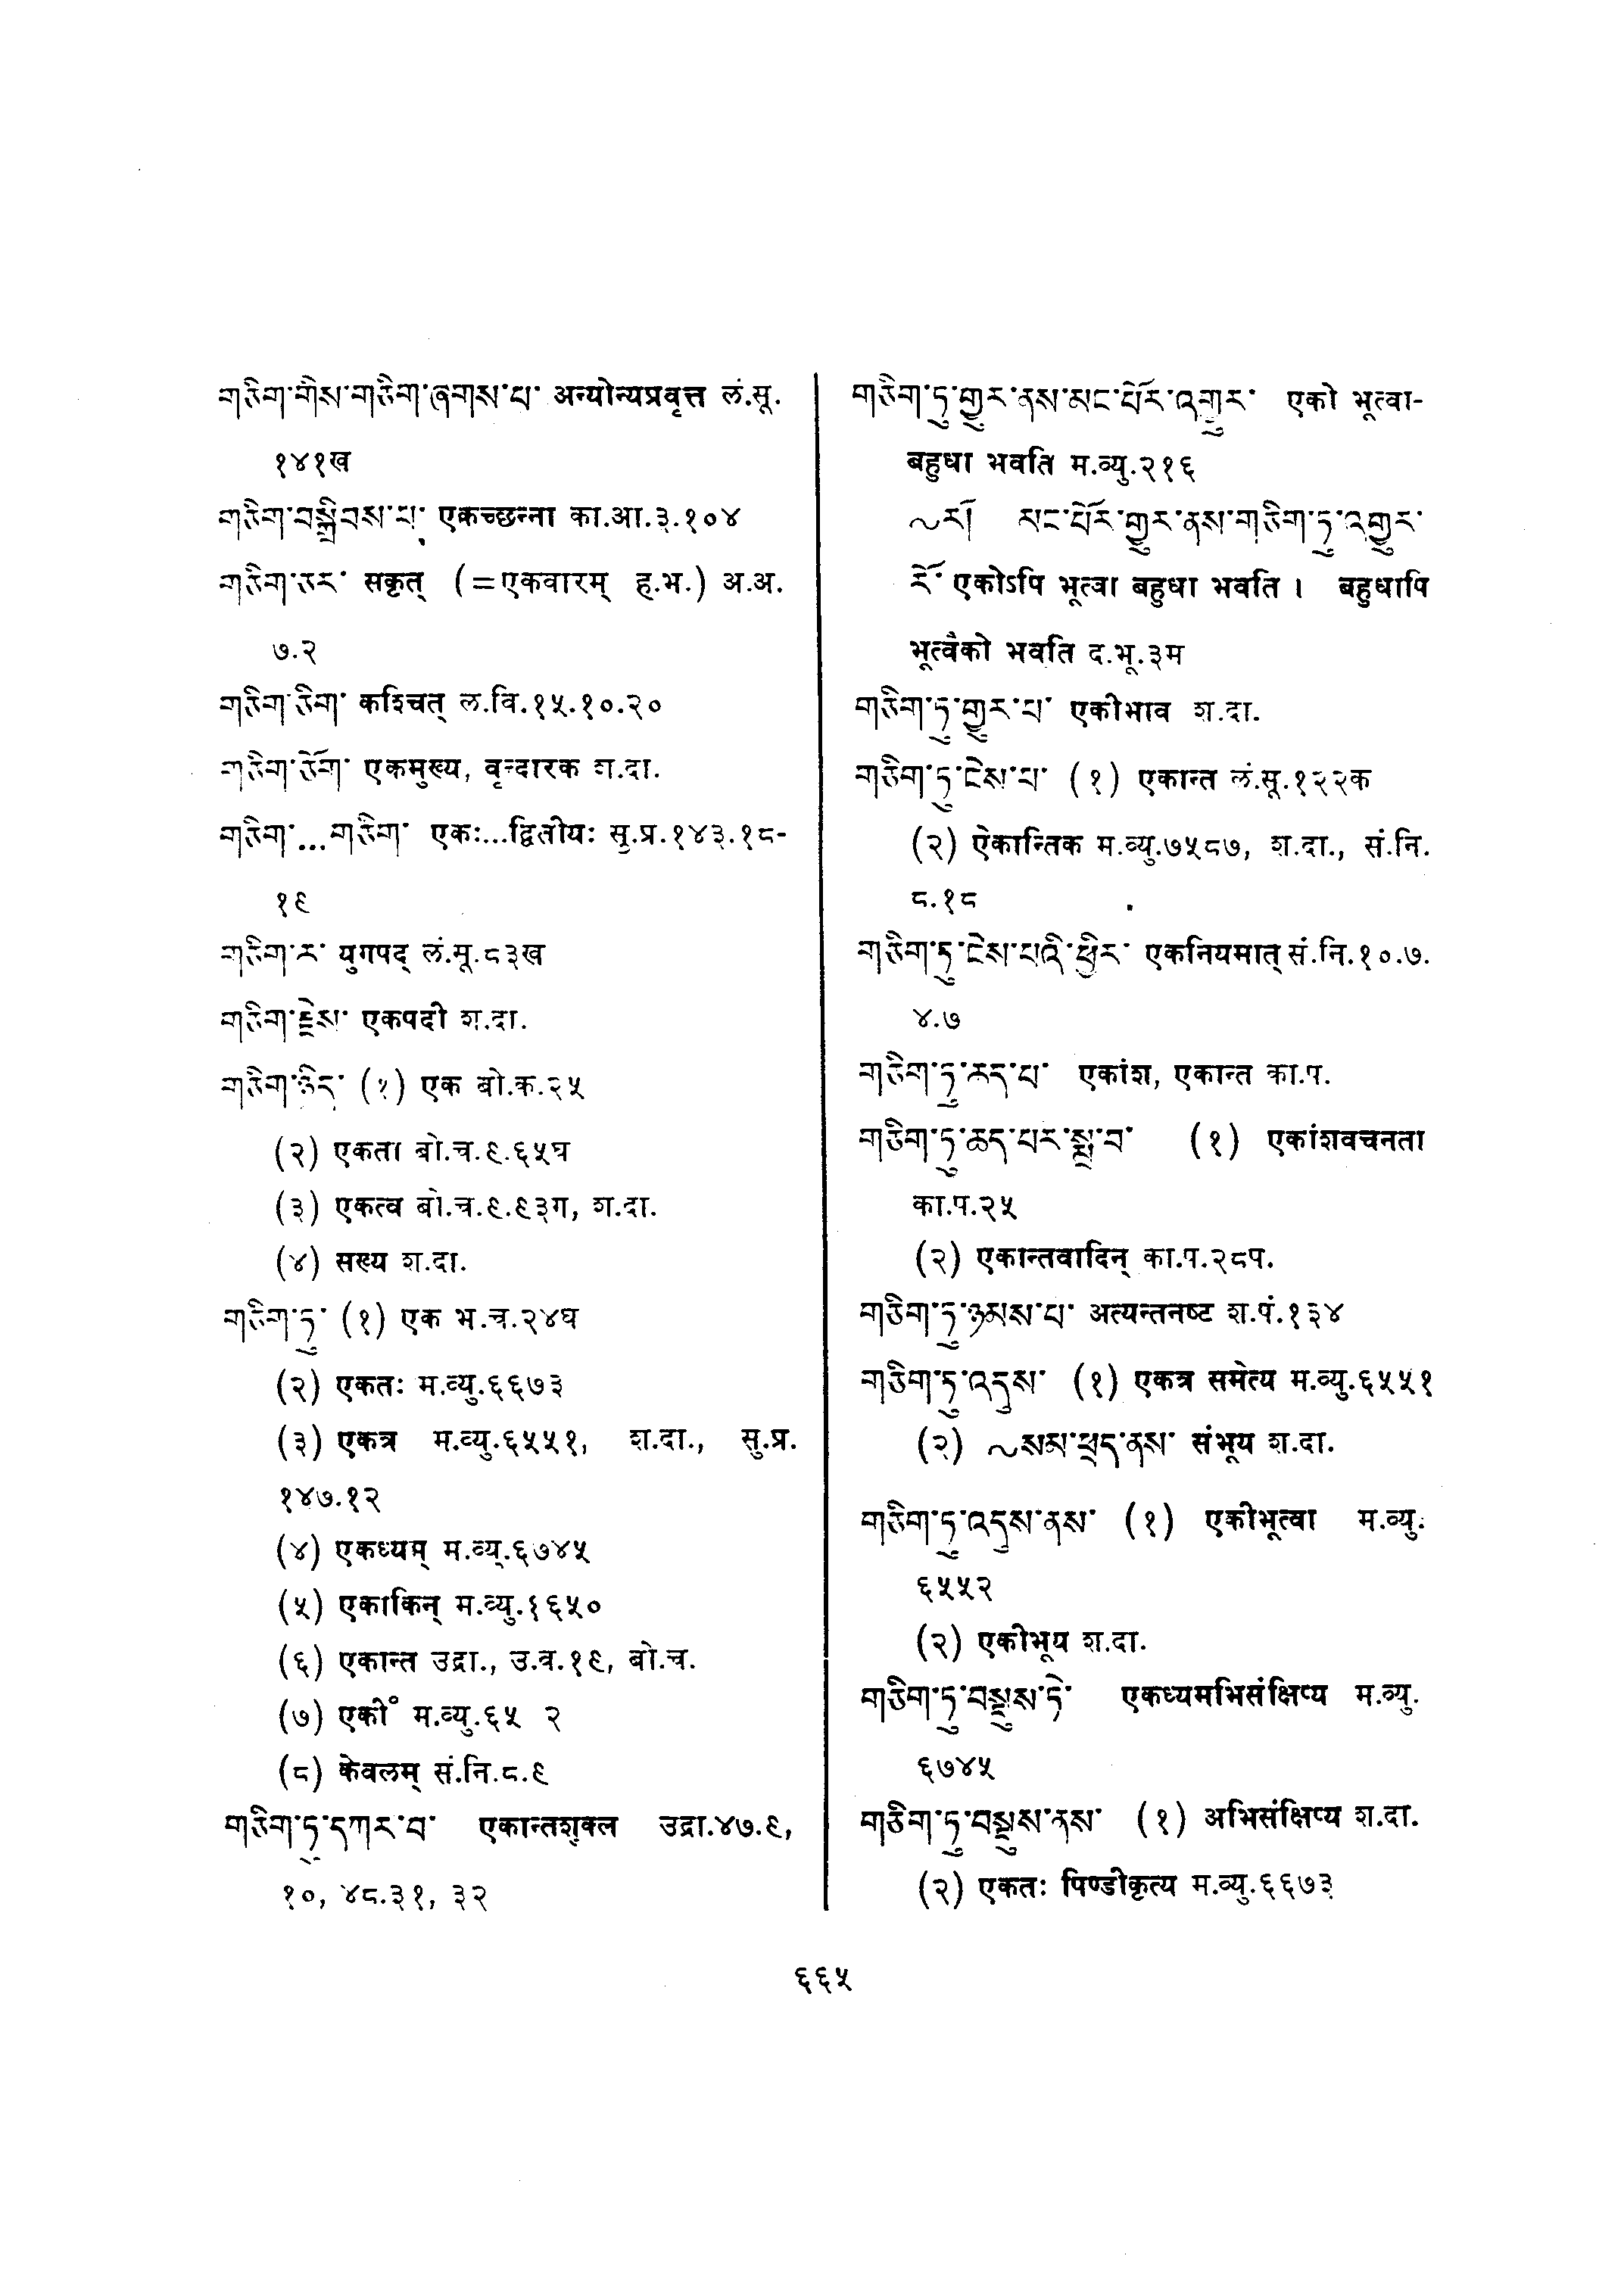 གཅིག་གིས་གཅིག་ཞུགས་པ་ अन्योन्यप्रवृत्त लं.सू.
१४१ख
གཅིག་བསྒྲིབས་པ་ एकच्छन्ना का.आ.३.१०४
གཅིག་ཅར་ सकृत् (=एकवारम् ह.भ.) अ.अ.
७.२
གཅིག་ཅིག་ कश्चित् ल.वि.१५.१०.२०
གཅིག་ཅོག་ एकमुख्य, वृन्दारक श.दा.
གཅིག་...གཅིག་ एकः...द्वितीयः सु.प्र.१४३.१८-
१९
གཅིག་ཆར་ युगपद् लं.सू.८३ख
གཅིག་རྗེས་ एकपदी श.दा.
གཅིག་ཉིད་ (१) एक बो.क.२५
(२) एकता बो.च.९.६५घ
(३) एकत्व बो.च.९.९३ग, श.दा.
(४) सख्य श.दा.
གཅིག་ཏུ་ (१) एक भ.च.२४घ
(२) एकतः म.व्यु.६६७३
(३) एकत्र म.व्यु.६५५१, श.दा., सु.प्र.
१४७.१२
(४) एकध्यम् म.व्यु.६७४५
(५) एकाकिन् म.व्यु.१६५०
(६) एकान्त उद्रा., उ.व.१९, बो.च.
(७) एकी॰ म.व्यु.६५ २
(८) केवलम् सं.नि.८.९
གཅིག་ཏུ་དཀར་བ་ एकान्तशुक्ल उद्रा.४७.९,
१०, ४८.३१, ३२
གཅིག་ཏུ་གྱུར་ནས་མང་པོར་འགྱུར་ एको भूत्वा-
बहुधा भवति म.व्यु.२१६
~རོ། མང་པོར་གྱུར་ནས་གཅིག་ཏུ་འགྱུར་
རོ་ एकोऽपि भूत्वा बहुधा भवति । बहुधापि
भूत्वैको भवति द.भू.३म
གཅིག་ཏུ་གྱུར་པ་ एकीभाव श.दा.
གཅིག་ཏུ་ངེས་པ་ (१) एकान्त लं.सू.१२२क
(२) ऐकान्तिक म.व्यु.७५८७, श.दा., सं.नि.
८.१८
གཅིག་ཏུ་ངེས་པའི་ཕྱིར་ एकनियमात् सं.नि.१०.७.
४.७
གཅིག་ཏུ་ཆད་པ་ एकांश, एकान्त का.प.
གཅིག་ཏུ་ཆད་པར་སྨྲ་བ་ (१) एकांशवचनता
का.प.२५
(२) एकान्तवादिन् का.प.२८प.
གཅིག་ཏུ་ཉམས་པ་ अत्यन्तनष्ट श.पं.१३४
གཅིག་ཏུ་འདུས་ (१) एकत्र समेत्य म.व्यु.६५५१
(२) ~སམ་ཕྲད་ནས་ संभूय श.दा.
གཅིག་ཏུ་འདུས་ནས་ (१) एकीभूत्वा म.व्यु.
६५५२
(२) एकीभूय श.दा.
གཅིག་ཏུ་བསྡུས་ཏེ་ एकध्यमभिसंक्षिप्य म.व्यु.
६७४५
གཅིག་ཏུ་བསྡུས་ནས་ (१) अभिसंक्षिप्य श.दा.
(२) एकतः पिण्डीकृत्य म.व्यु.६६७३
६६५